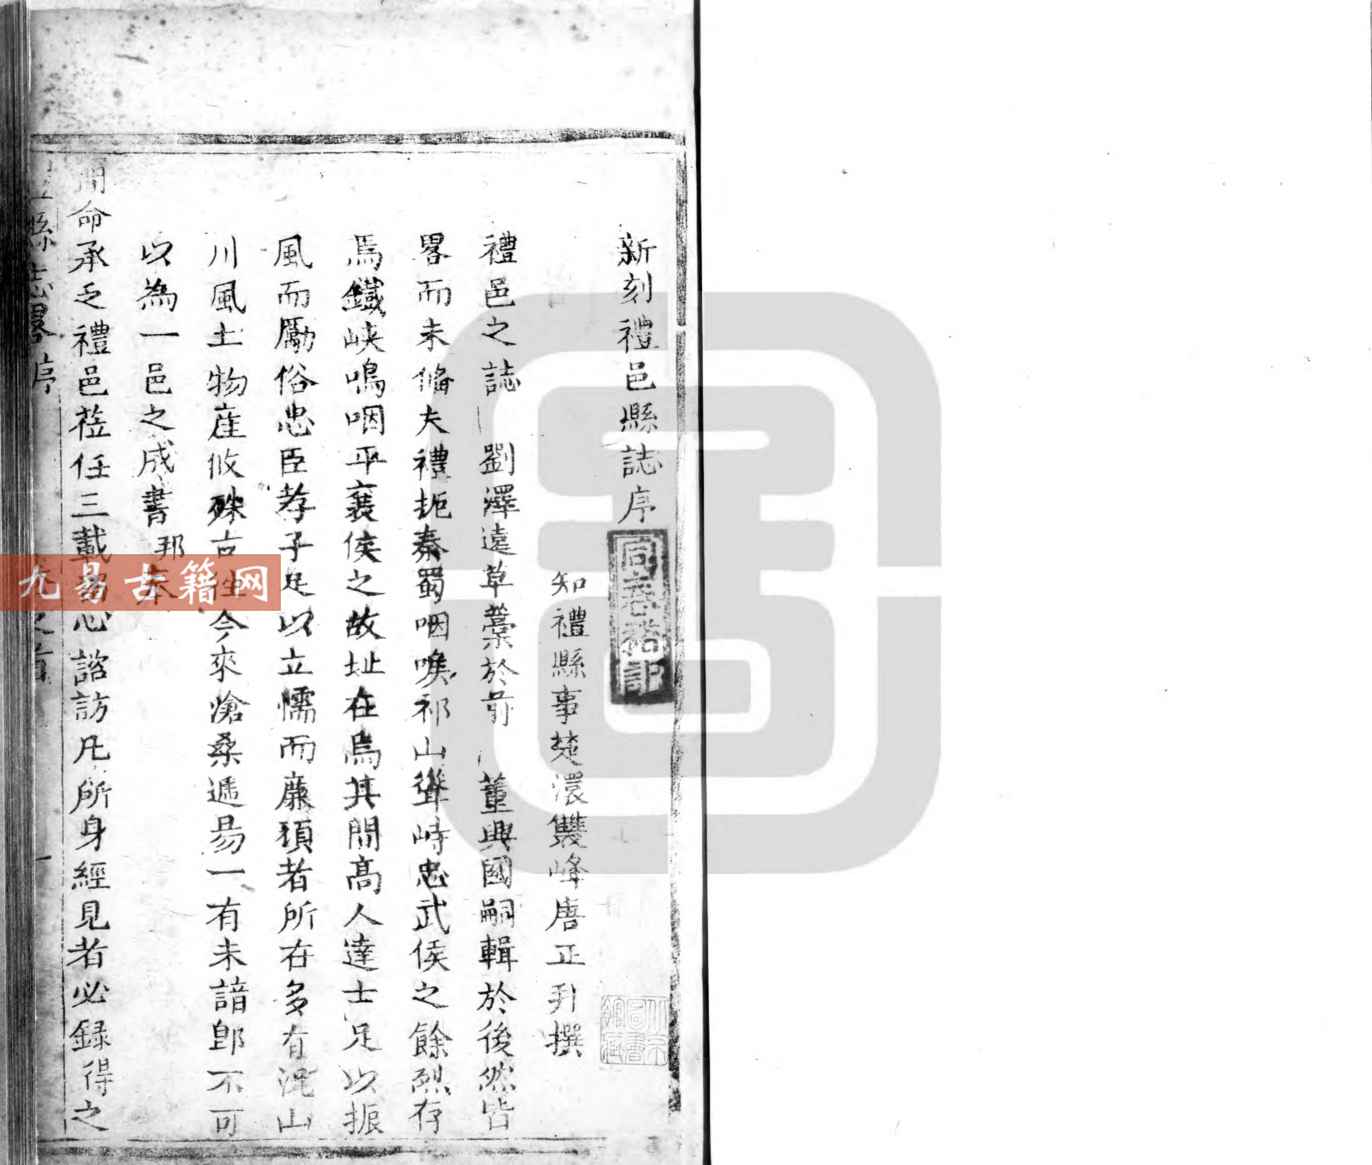 新刻禮邑縣誌序
知禮縣事楚澴雙峰唐正升撰
禮邑之誌 劉澤遠草藁於前 董興國嗣輯於後然皆
畧而未俻夫禮扼秦蜀咽喉祁山聳峙忠武侯之餘烈存
焉鐵峽鳴咽平襄侯之故址在焉其間高人達士足以振
風而勵俗忠臣孝子足以立懦而廉頑者所在多有況山
川風土物産攸殊古往今來滄桑遞易一有未諳卽不可
以為一邑之成書邦本
簡命承乏禮邑莅任三載留心諮訪凡所身經見者必録得之
縣志畧序
一
九易古籍网